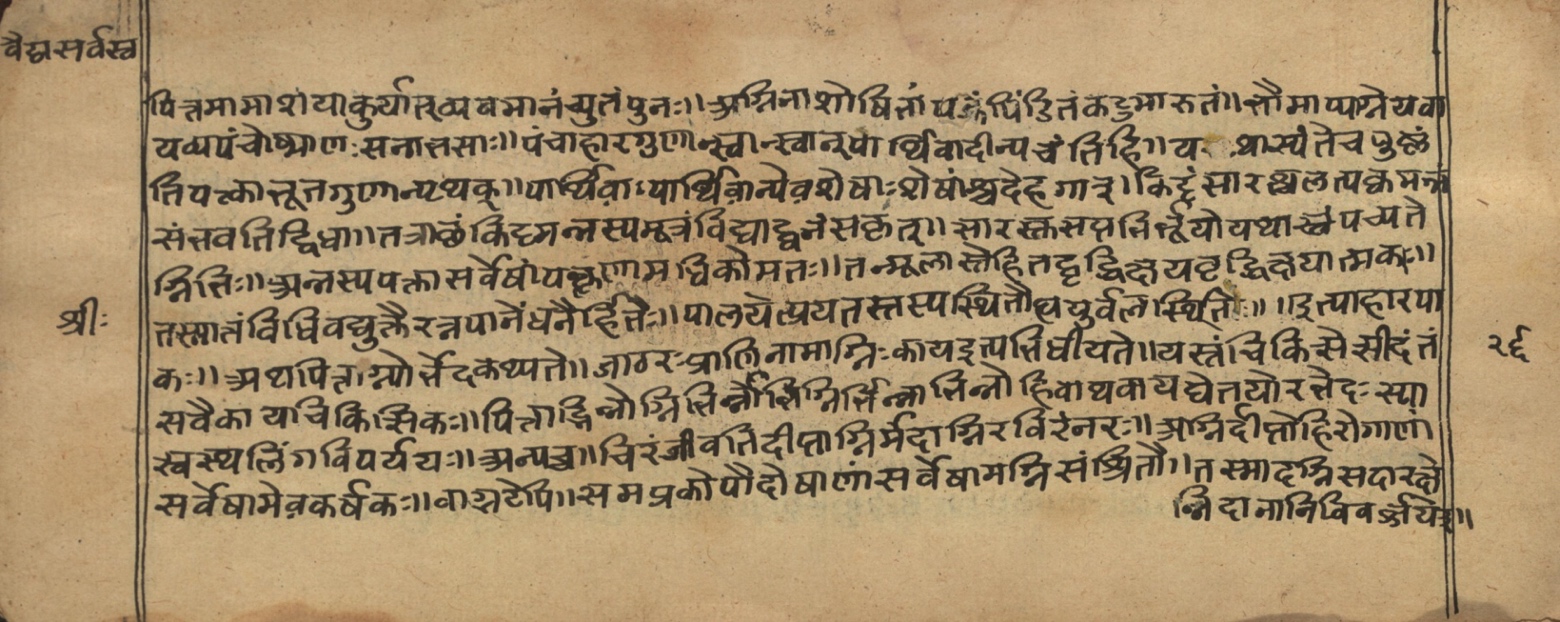 वैद्यसर्वस्व
पित्तमामाशयाकुर्यात्व्यवमानं च्युतं पुनः॥ अग्निना शोषितं पक्वं पिंडितं कटुमारुतं॥ भौमाप्याग्नेयवा
यव्यपंचोष्माणः सनाभसाः॥ पंचाहारगुणान्स्वान्स्वान्पार्थिवादीन्पचंति हि॥ यथास्यंते च पुष्णं
ति पक्त्वा भूतगुणान्पृथक्॥ पार्थिवाः पार्थिवान्येव शेषाः शेषांश्च देहगान्॥ किट्टं सारश्च लत्पक्वमन्नं
संभवति द्विधा॥ तत्राछं किट्टमन्नस्य मूत्रं विद्याद्घनं सकृत्॥ सारस्क्त सप्तभिर्भूयो यथास्वं पच्यते
ग्निभिः॥ अन्नस्य पक्ता सर्वेषां पक्तॄणामधिको मतः॥ तन्मूलास्ते हि तद्वृद्धिक्षयवृद्धिक्षयात्मकाः॥
तस्मात्तं विधिवद्युक्तैरन्नपानेंधनैर्हितैः॥ पालयेत्प्रयतस्तस्य स्थितौ ह्यायुर्बलस्थितिः॥ इत्याहारपा
कः॥ अथ पित्ताग्न्योर्भेद कथ्यते॥ जाठरः प्राणिनामाग्निः काय इत्यभिधीयते॥ यस्तं चिकित्सेत्सीदंतं
स वै कायचिकित्सिकः॥ पित्ताद्भिन्नोग्निभिर्न्नोग्निर्भिन्नाभिन्नो हि वाथवा यद्येतयोरभेदः स्या
स्वस्थलिंगविपर्ययः॥ अन्यच्च॥ चिरं जीवति दीप्ताग्निर्मंदाग्निरविरंनरः॥ अग्निर्दीप्तो हि रोगाणां
सर्वेषामेव कर्षकः॥ वाग्भटेपि॥ समप्रकोपौ दोषाणां सर्वेषामग्निसंश्रितौ॥ तस्मादग्नि सदा रक्षे
न्निदानानि विवर्जयेत्॥
श्रीः
२६